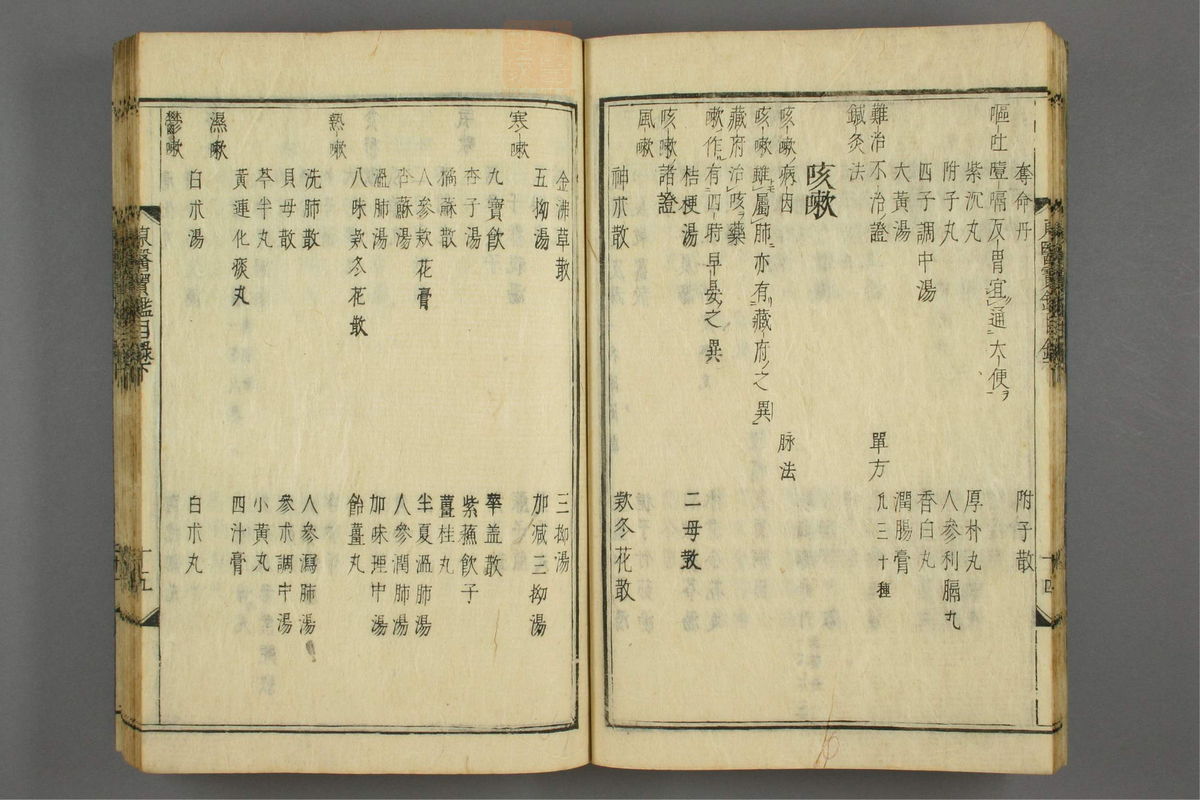 奪命丹 附子散
嘔吐噎膈反胃宜通大便ヲ
紫沉丸 厚朴丸
附子丸 人參利膈丸
四子調中湯 香白丸
大黃湯 潤腸膏
難治不治證 單方 凡三十種
鍼灸法
咳嗽
咳嗽ノ病因 脉法
咳嗽雖屬肺亦有藏府ノ之異
藏府治咳藥
嗽作有四時早晏之異
桔梗湯 二母散
咳嗽ノ諸證
風嗽
神朮散 欵冬花散
金沸草散 三拗湯
五拗湯 加減三拗湯
寒嗽
九寶飮 華盖散
杏子湯 紫蘓飮子
橘蘇散 薑桂丸
八參欵花膏 半夏溫肺湯
杏蘇湯 人參潤肺湯
溫肺湯 加味理中湯
八味欵冬花散 飴薑丸
熱嗽
洗肺散 人參瀉肺湯
貝母散 參朮調中湯
芩半丸 小黃丸
黃連化痰丸 四汁膏
濕嗽
白朮湯 白朮丸
鬱嗽
東醫寶鑑目錄下 十五